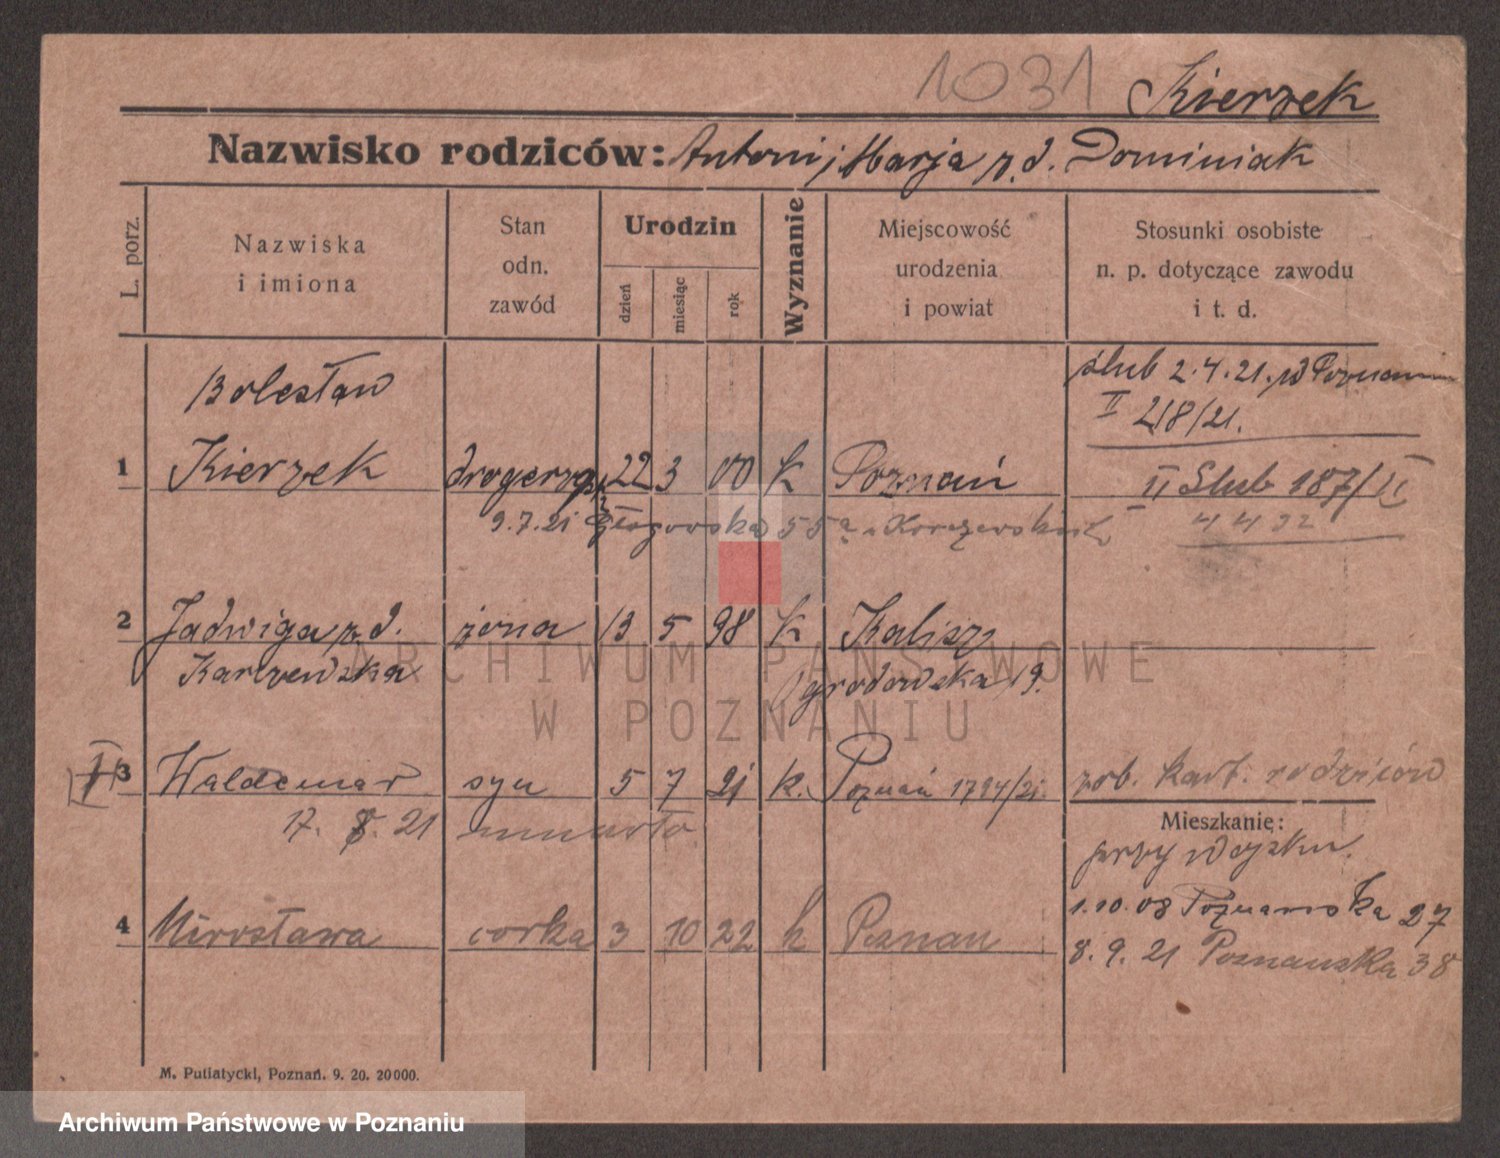 1031 Kierzek
Nazwisko rodziców: Antoni i Marja z. d. Dominiak
L. porz.
Nazwiska
i imiona
Stan
odn.
zawód
Urodzin
dzień
miesiąc
rok
Wyznanie
Miejscowość
urodzenia
i powiat
Stosunki osobiste
n. p. dotyczące zawodu
i t. d.
ślub 2.4.21. w Poznaniu
II 218/21.
Bolesław
1 Kierzek drogerzysta 22 3 00 K Poznań II Slub 187/II
9.7.21 Głogowska 55a
4 4 32
2 Jadwiga z. d. żona 13 5 98 K Kalisz
Karlzewska grodowska 19.
3 Waldemar syn 5 7 21 k. Poznań 1794/21. zob. kart. rodziców
17. 8. 21 umarło
Mieszkanie:
przy wojsku.
4 Mirosława corka 3 10 22 k Poznan
1.10.08 Poznanska 27
8. 9. 21 Poznanska 38
M. Putiatycki, Poznań. 9. 20. 20000.
ARCHIWUM PAŃSTWOWE
W POZNANIU
Archiwum Państwowe w Poznaniu